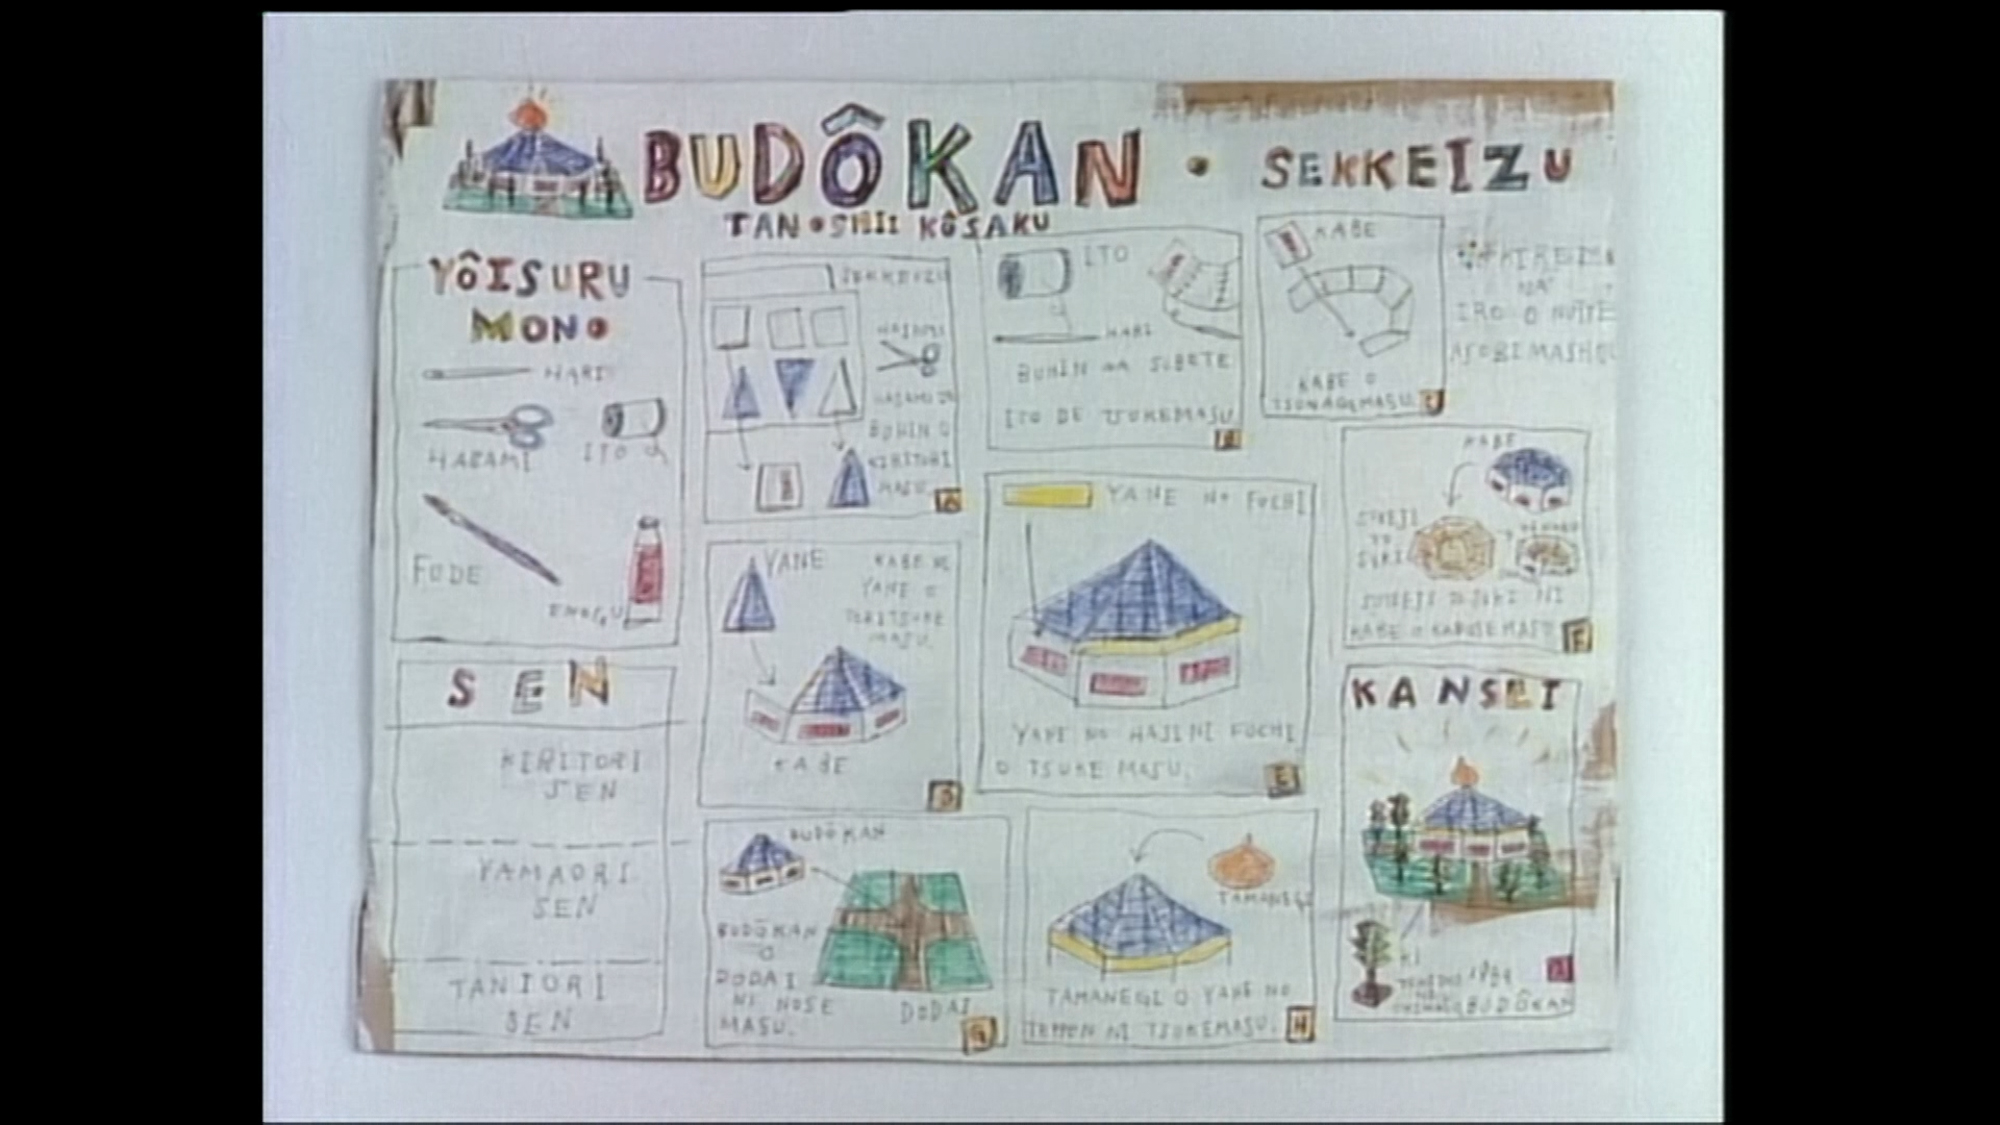 BUDÔKAN • SEKKEIZU
TANOSHII KÔSAKU
YÔISURU
MONO
HARI
HASAMI
ITO
FUDE
ENOGU
SEN
KIRITORI
SEN
YAMAORI
SEN
TANIORI
SEN
SEKKEIZU
HASAMI
HASAMI DE
BUHIN O
KIRITORI
MASU.
A
ITO
HARI
BUHIN WA SUBETE
ITO DE TSUKEMASU
B
KABE
KABE O
TSUNAGEMASU.
C
KIREI
NA
IRO O NUTTE
ASOBIMASHO
YANE
KABE NI
YANE O
TORITSUKE
MASU.
KABE
D
YANE NO FUCHI
YANE NO HAJI NI FUCHI
O TSUKE MASU.
E
KABE
KABE O KABUSEMASU.
F
BUDÔKAN
BUDÔKAN
O
DODAI
NI NOSE
MASU.
DODAI
G
TAMANEGI
TAMANEGI O YANE NO
TEPPEN NI TSUKEMASU.
H
KANSEI
KI
BUDÔKAN